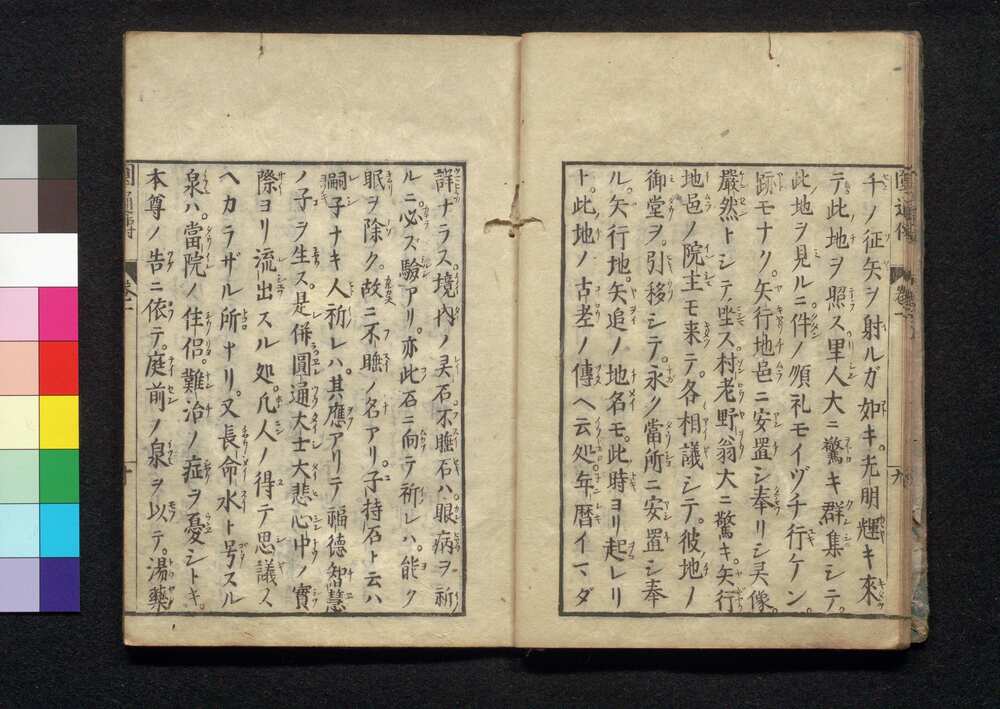 千ノ征矢ヲ射ルガ如キ。光明輝キ來
テ此地ヲ照ス里人大ニ驚キ群集シテ。
此地ヲ見ルニ件ノ順礼モイヅチ行ケン。
跡モナク。矢行地邑ニ安置シ奉リシ灵像。
嚴然トシテ坐ス村老野翁大ニ驚キ。矢行
地邑ノ院主モ来テ。各相議シテ。彼地ノ
御堂ヲ。引移シテ。永ク當所ニ安置シ奉
ル。矢行地。矢追ノ地名モ。此時ヨリ起レリ
ト。此地ノ古老ノ傳ヘ云処。年暦イマダ
詳ナラス境内ノ灵石不睡石ハ。眼病ヲ祈
ルニ必ズ驗アリ。亦此石ニ向テ祈レハ。能ク
眠ヲ除ク。故ニ不睡ノ名アリ。子持石ト云ハ
嗣子ナキ人祈レハ。其應アリテ福德智慧
ノ子ヲ生ス。是併圓通大士大悲心中ノ實
際ヨリ流出スル処。凡人ノ得テ思議ス
ヘカラザル所ナリ。又長命水ト号スル
泉ハ。當院ノ住侶。難治ノ症ヲ憂シトキ。
本尊ノ告ニ依テ。庭前ノ泉ヲ以テ。湯藥